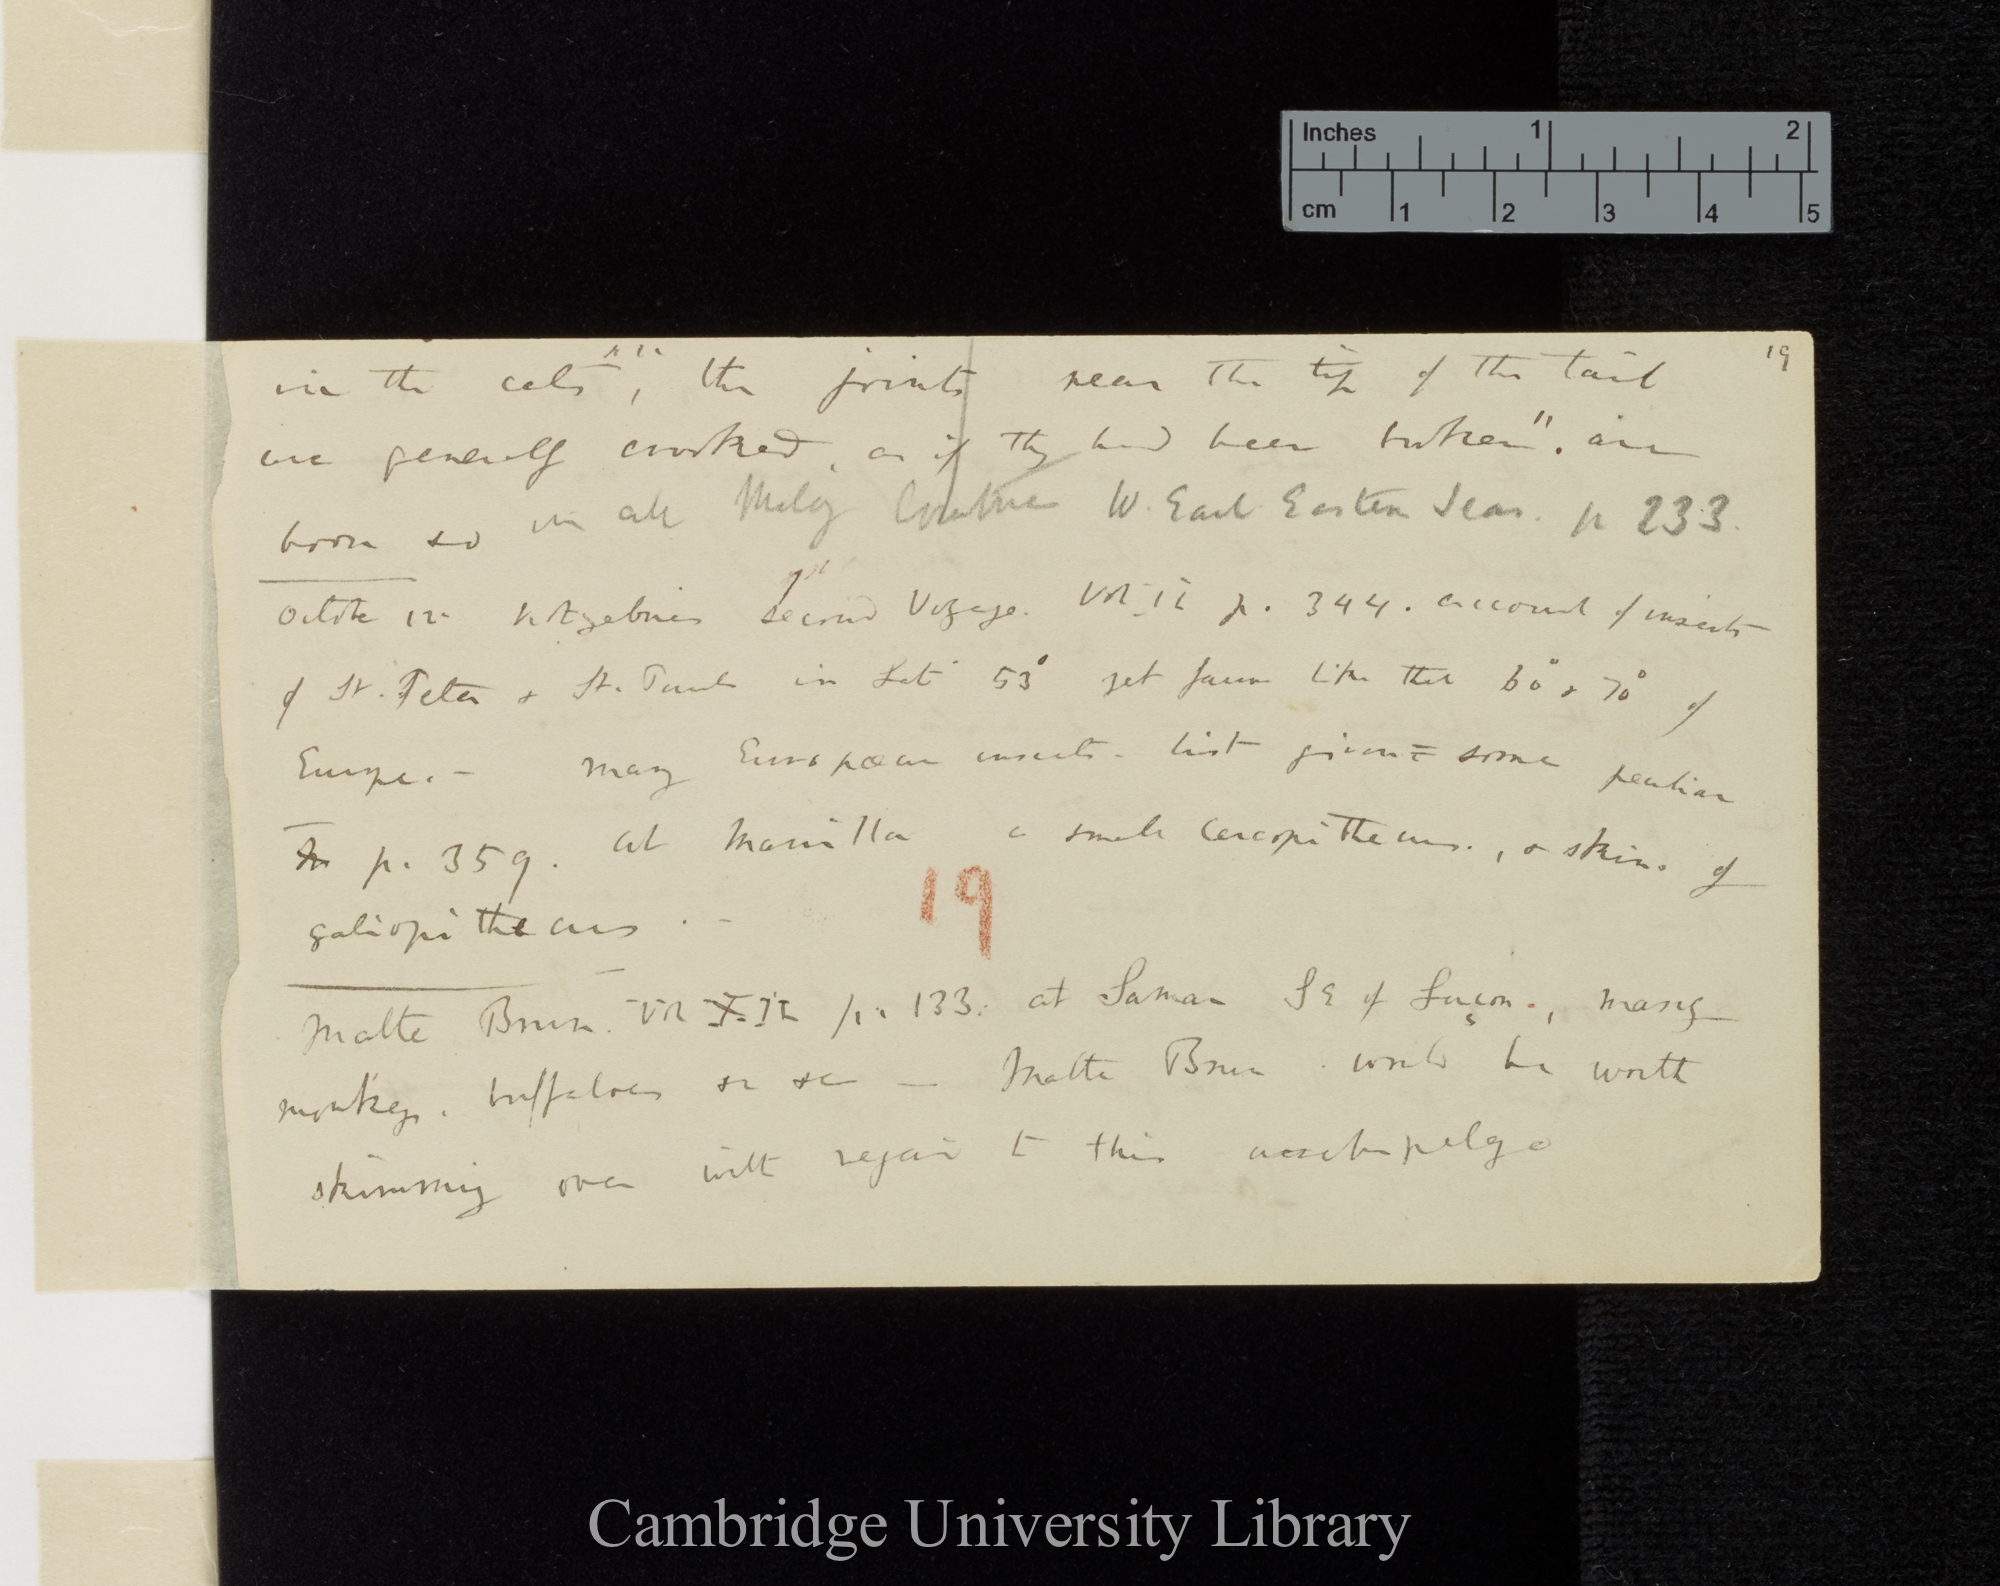 19
in the cats", "the joints near the tip of the tail
are generally crooked, as if they had been broken". are
born so in all Malay Countries W. Earl Eastern Seas. p 233.
October 12th Kotzebue's second Voyage. Vol. II p. 344. account of insects
1st
of St. Peter & St. Paul in Lat 53° yet fauna like that 60° & 70° of
Europe. - many European insects - list given = some peculiar
p. 359. at Manilla a small Cercopithecus., & skins of
galiopithecus. -
19
Malte Brun. Vol XII p. 133. at Samar SE of Luçon., many
monkeys. buffaloes &c &c — Malte Brun. would be worth
skimming over with regard to this archipelago
Inches 1 2
cm 1 2 3 4 5
Cambridge University Library